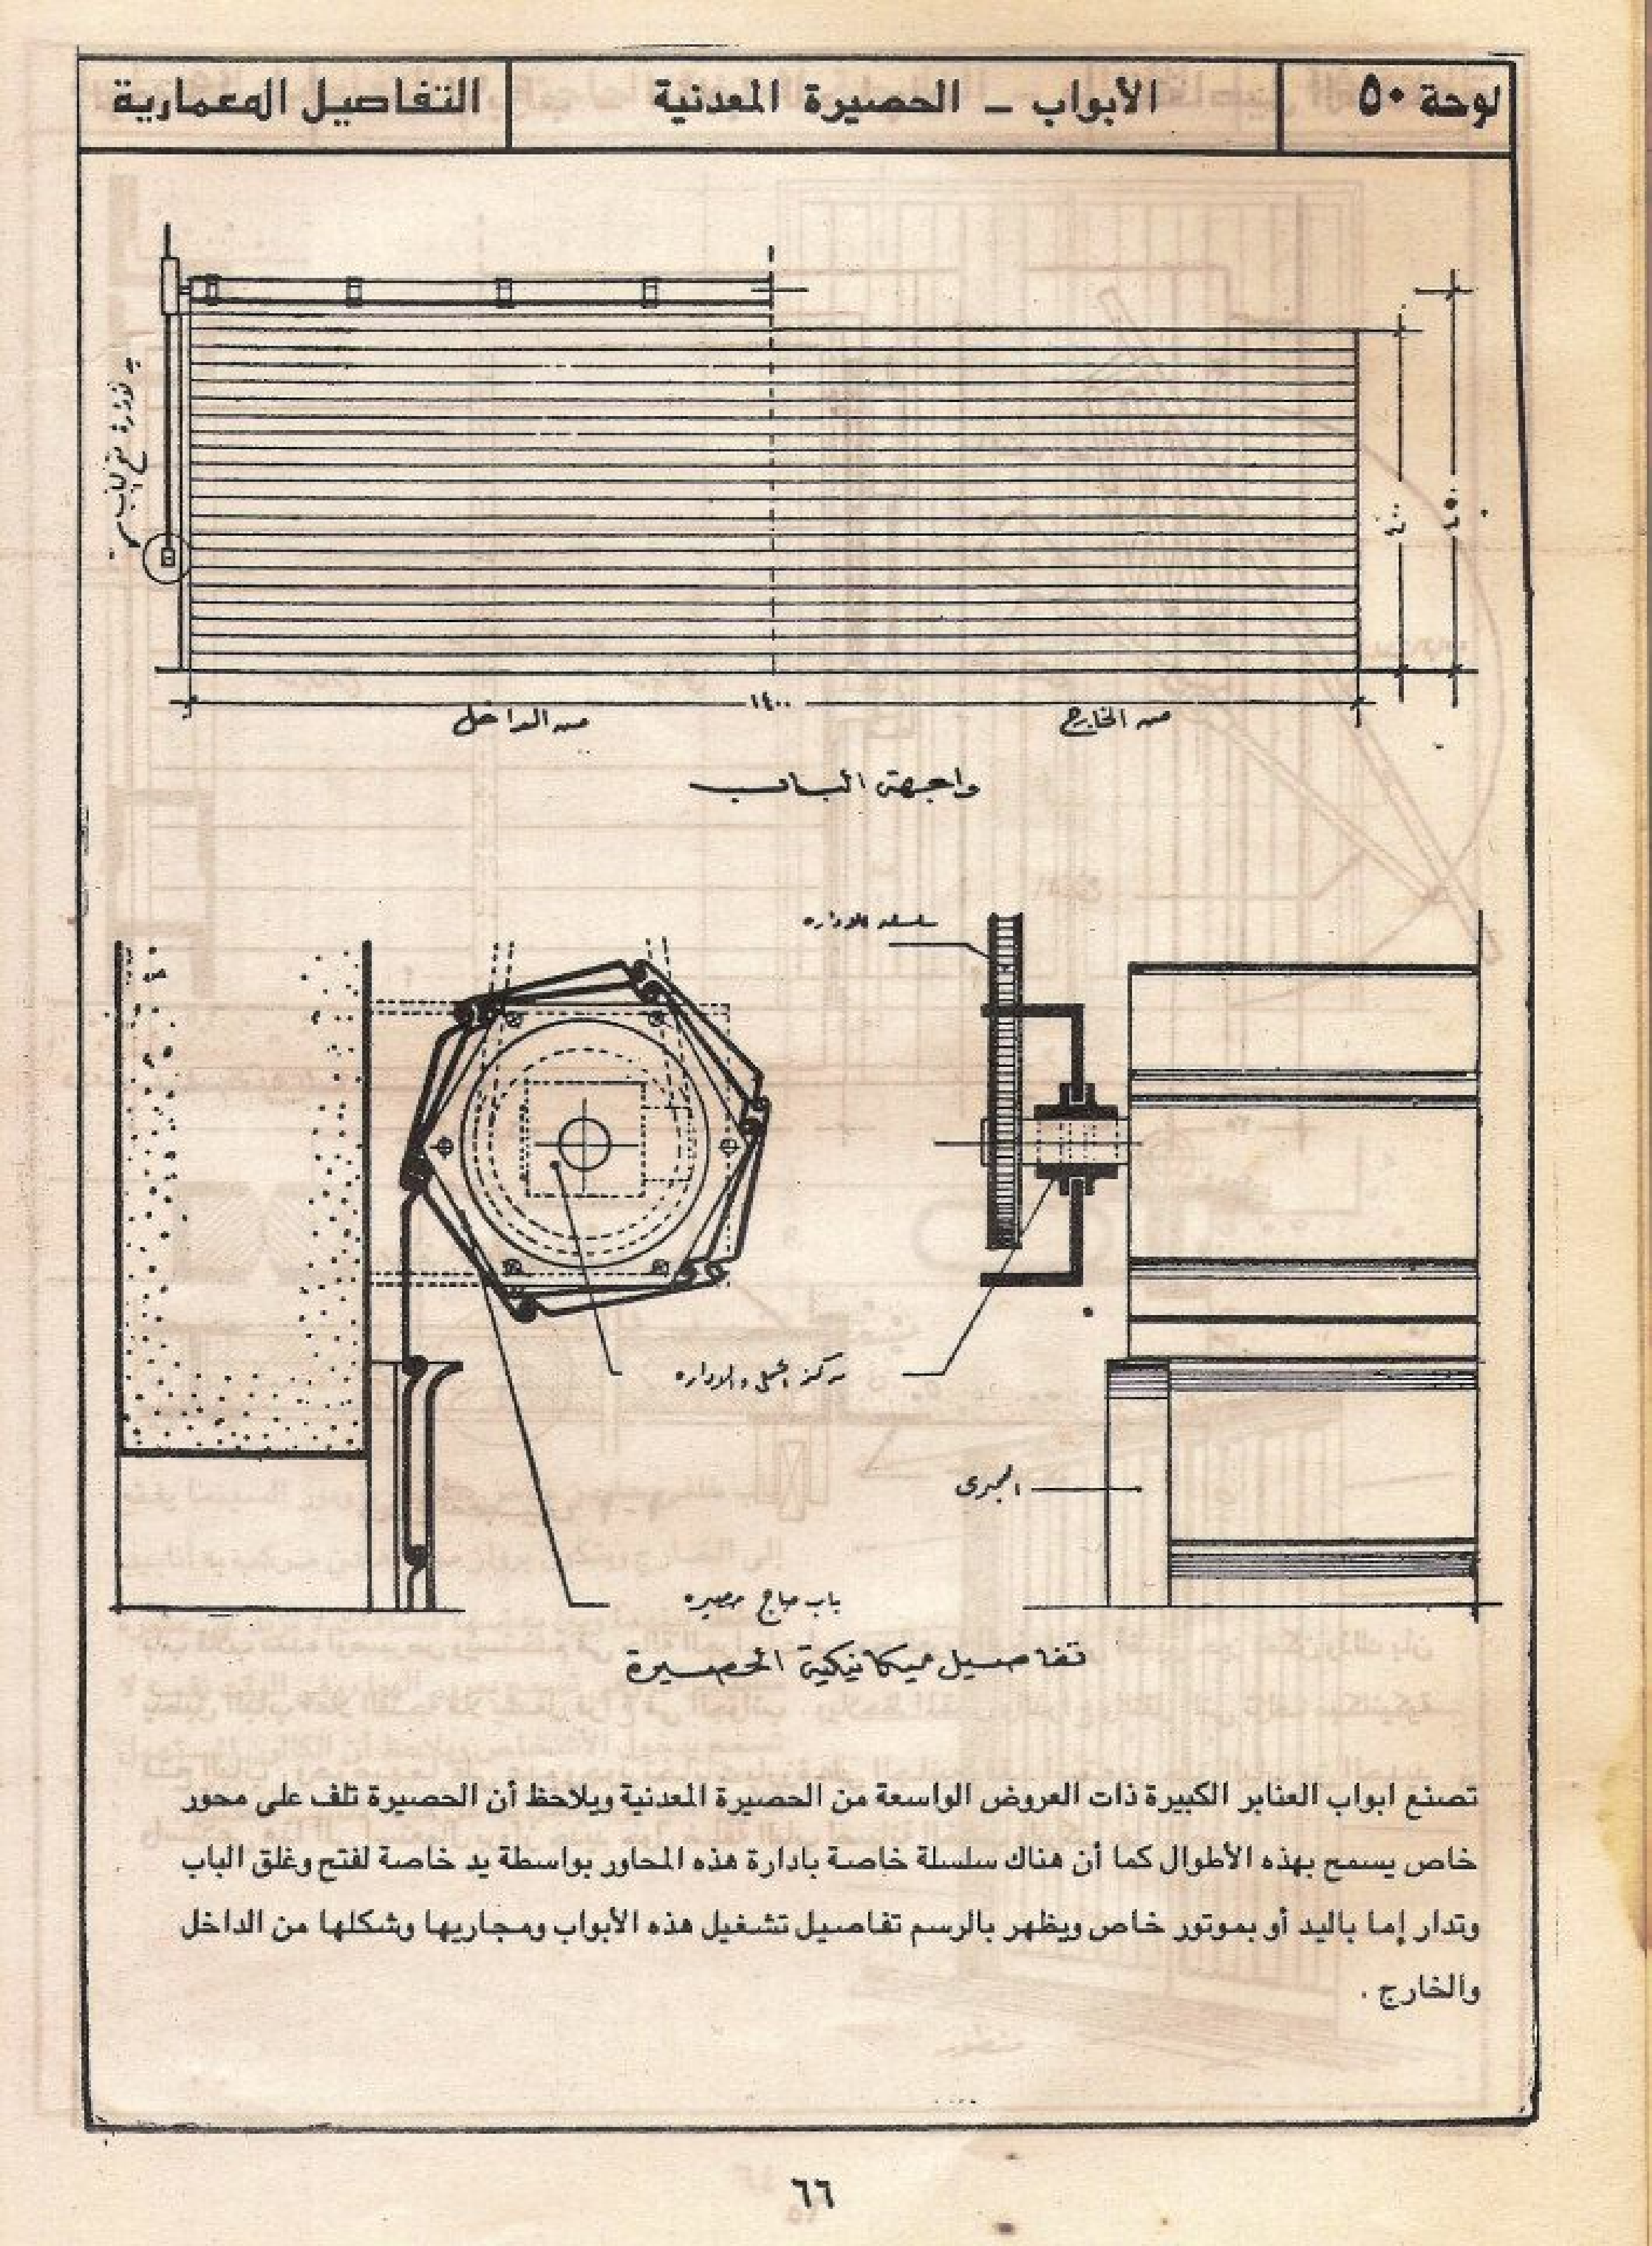 لوحة ٥٠
الأبواب ـ الحصيرة المعدنية
التفاصيل المعمارية
يد لإدارة فتح الباب
٤٠٠
٤٥٠
١٤٠٠
من الخارج
من الداخل
واجهتى الباب
سلسله الاداره
مركز الحمل والاداره
المجرى
باب صاج حصيره
تفاصيل ميكانيكية الحصيرة
تصنع ابواب العنابر الكبيرة ذات العروض الواسعة من الحصيرة المعدنية ويلاحظ أن الحصيرة تلف على محور
خاص يسمح بهذه الأطوال كما أن هناك سلسلة خاصة بادارة هذه المحاور بواسطة يد خاصة لفتح وغلق الباب
وتدار إما باليد أو بموتور خاص ويظهر بالرسم تفاصيل تشغيل هذه الأبواب ومجاريها وشكلها من الداخل
والخارج .
٦٦